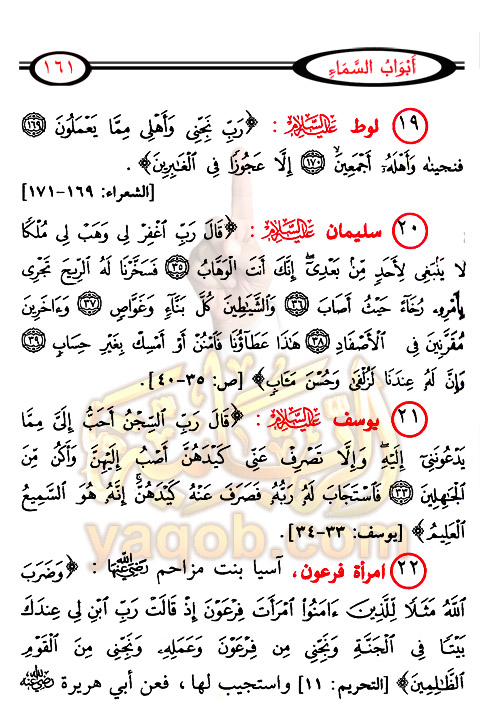 أَبْوَابُ السَّمَاءِ
١٦١
١٩ لوط عَلَيْهِ السَّلَام : ﴿رَبِّ نَجِّنِي وَأَهْلِى مِمَّا يَعْمَلُونَ ﴿١٦٩﴾
فنجيناه وَأَهْلَهُۥٓ أَجْمَعِينَ ﴿١٧٠﴾ إِلَّا عَجُوزًا فِي ٱلْغَابِرِينَ﴾ .
[الشعراء: ١٦٩-١٧١]
٢٠ سليمان عَلَيْهِ السَّلَام : ﴿قَالَ رَبِّ ٱغْفِرْ لِى وَهَبْ لِى مُلْكًا
لَا يَنۢبَغِى لِأَحَدٍ مِّنۢ بَعْدِىٓ إِنَّكَ أَنتَ ٱلْوَهَّابُ ﴿٣٥﴾ فَسَخَّرْنَا لَهُ ٱلرِّيحَ تَجْرِى
بِأَمْرِهِۦ رُخَآءً حَيْثُ أَصَابَ ﴿٣٦﴾ وَٱلشَّيَٰطِينَ كُلَّ بَنَّآءٍ وَغَوَّاصٍ ﴿٣٧﴾ وَءَاخَرِينَ
مُقَرَّنِينَ فِى ٱلْأَصْفَادِ ﴿٣٨﴾ هَٰذَا عَطَآؤُنَا فَٱمْنُنْ أَوْ أَمْسِكْ بِغَيْرِ حِسَابٍ ﴿٣٩﴾
وَإِنَّ لَهُۥ عِندَنَا لَزُلْفَىٰ وَحُسْنَ مَـَٔابٍ﴾ [ص: ٣٥-٤٠].
٢١ يوسف عَلَيْهِ السَّلَام : ﴿قَالَ رَبِّ ٱلسِّجْنُ أَحَبُّ إِلَىَّ مِمَّا
يَدْعُونَنِىٓ إِلَيْهِ وَإِلَّا تَصْرِفْ عَنِّى كَيْدَهُنَّ أَصْبُ إِلَيْهِنَّ وَأَكُن مِّنَ
ٱلْجَٰهِلِينَ ﴿٣٣﴾ فَٱسْتَجَابَ لَهُۥ رَبُّهُۥ فَصَرَفَ عَنْهُ كَيْدَهُنَّ إِنَّهُۥ هُوَ ٱلسَّمِيعُ
ٱلْعَلِيمُ﴾ [يوسف: ٣٣-٣٤].
٢٢ امرأة فرعون، آسيا بنت مزاحم رَضِيَ اللَّهُ عَنْهَا : ﴿وَضَرَبَ
ٱللَّهُ مَثَلًا لِّلَّذِينَ ءَامَنُوا۟ ٱمْرَأَتَ فِرْعَوْنَ إِذْ قَالَتْ رَبِّ ٱبْنِ لِى عِندَكَ
بَيْتًا فِى ٱلْجَنَّةِ وَنَجِّنِى مِن فِرْعَوْنَ وَعَمَلِهِۦ وَنَجِّنِى مِنَ ٱلْقَوْمِ
ٱلظَّٰلِمِينَ﴾ [التحريم: ١١] واستجيب لها ، فعن أبي هريرة رَضِيَ اللَّهُ عَنْهُ
yaqob.com